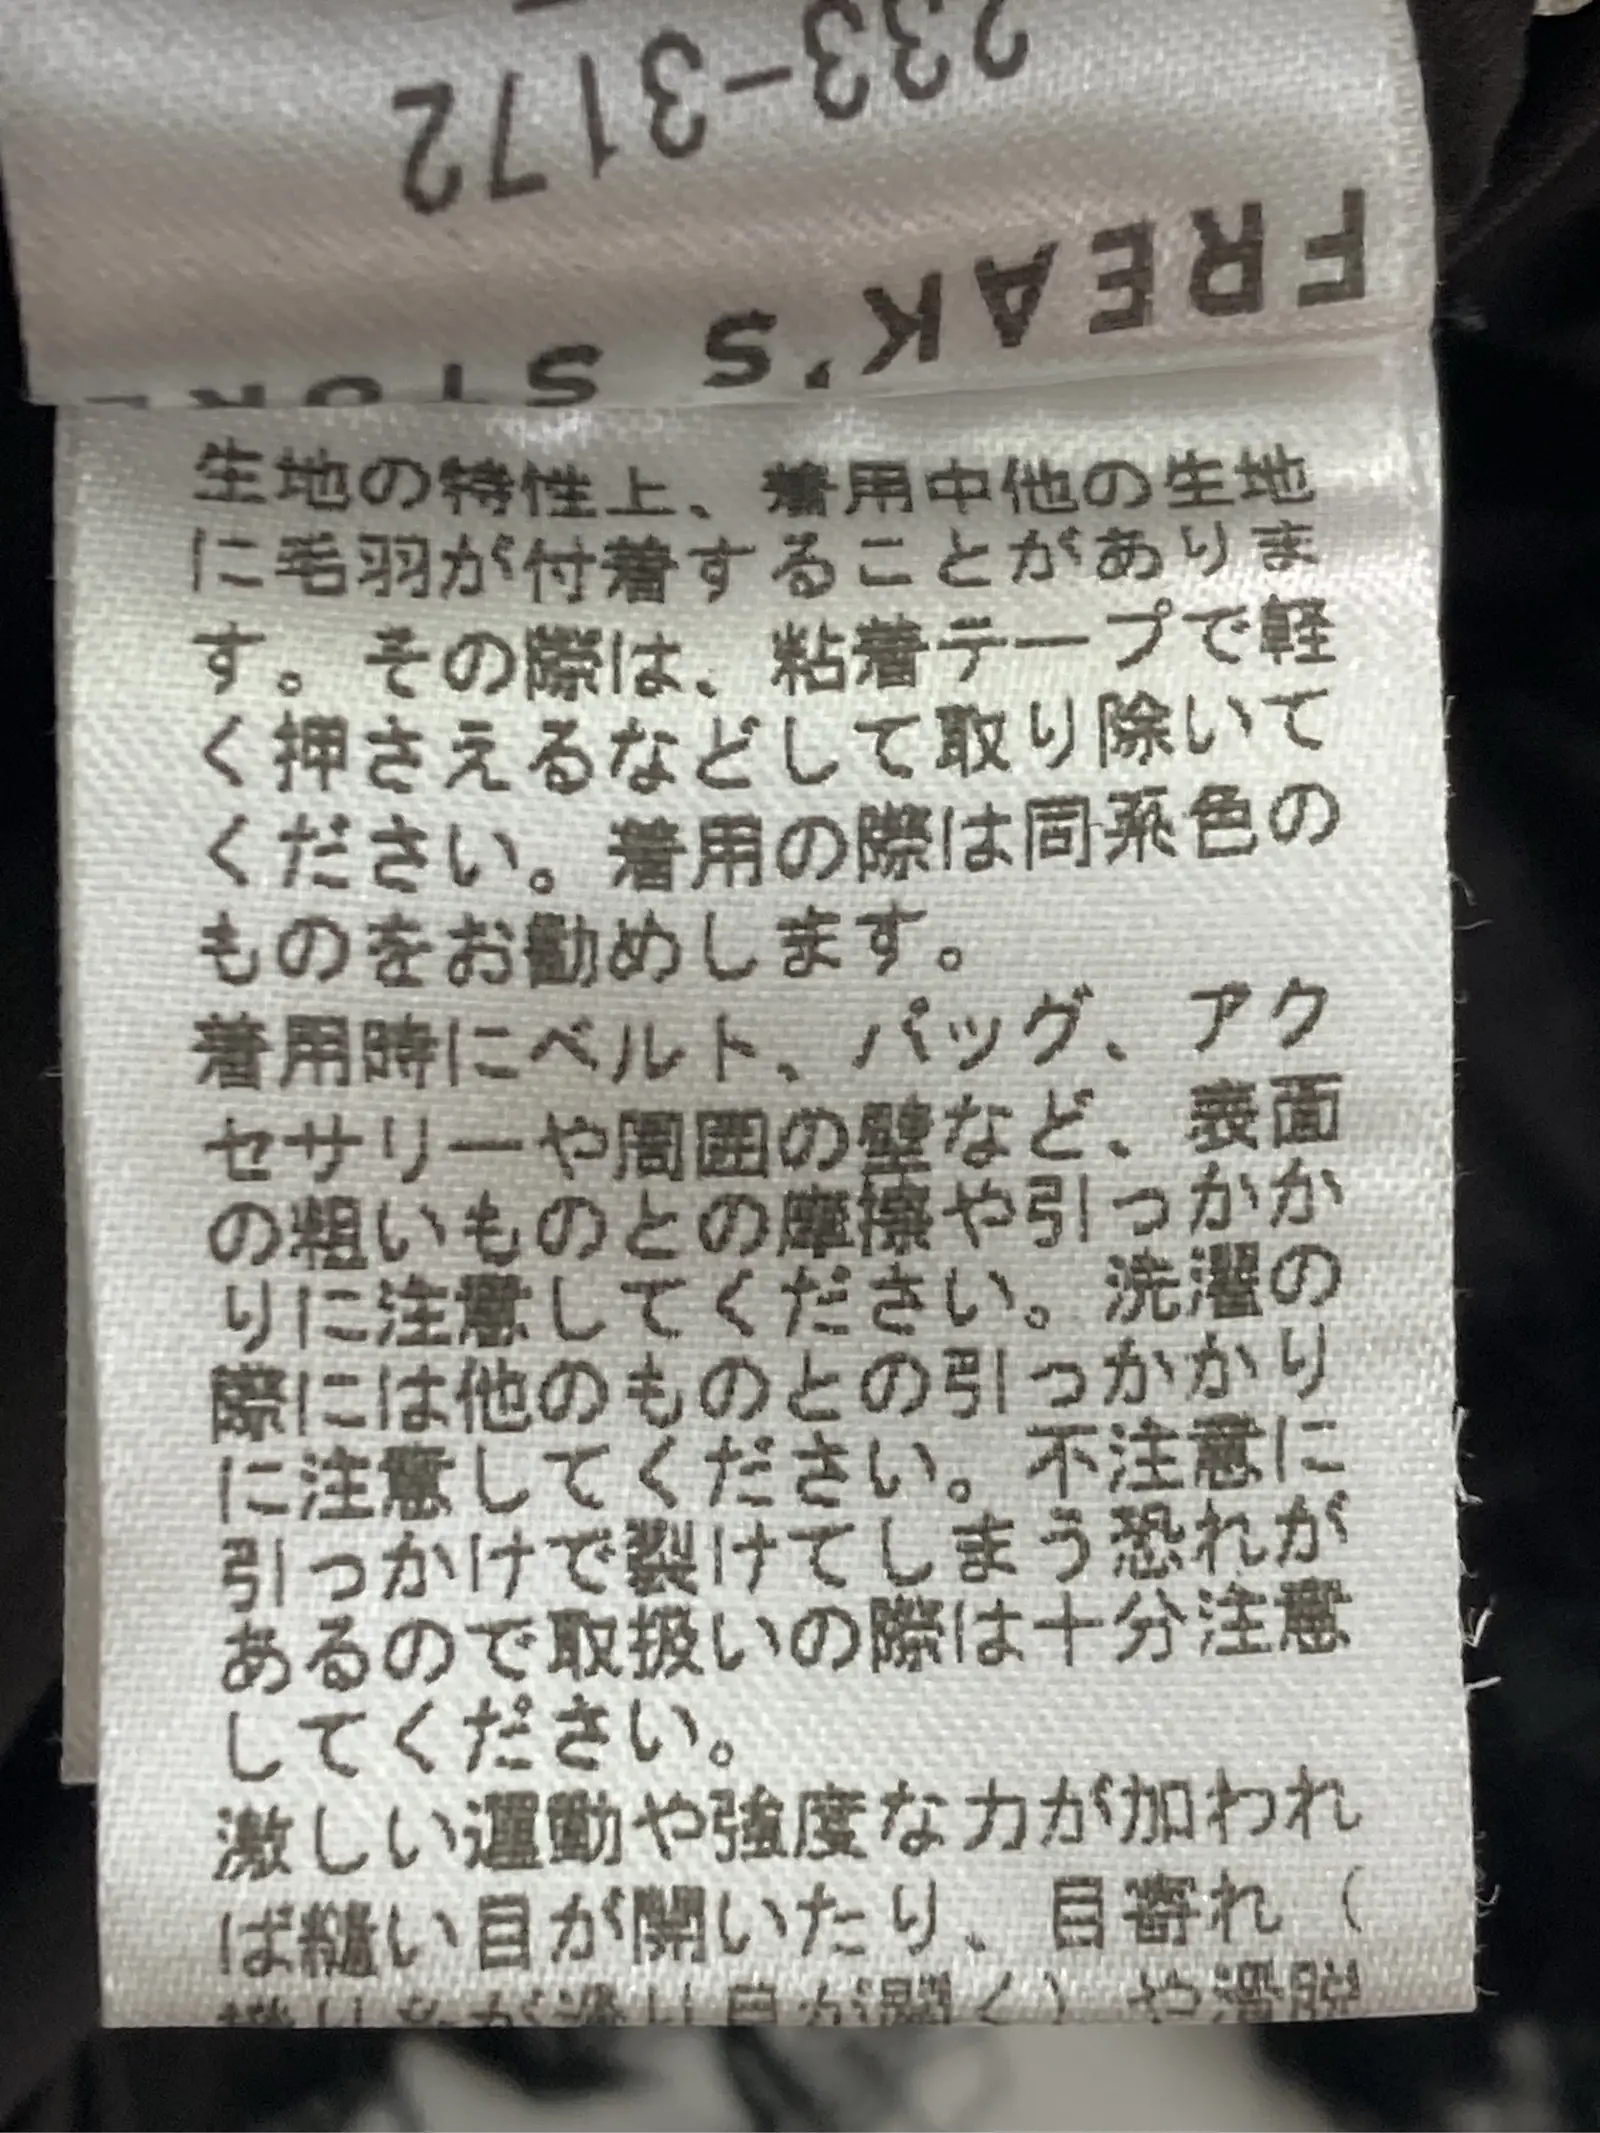 33-3172
FREAK'S STORE
生地の特性上、着用中他の生地
に毛羽が付着することがありま
す。その際は、粘着テープで軽
く押さえるなどして取り除いて
ください。着用の際は同系色の
ものをお勧めします。
着用時にベルト、バッグ、アク
セサリーや周囲の壁など、表面
の粗いものとの摩擦や引っかか
りに注意してください。洗濯の
際には他のものとの引っかかり
に注意してください。不注意に
引っかけで裂けてしまう恐れが
あるので取扱いの際は十分注意
してください。
激しい運動や強度な力が加われ
ば縫い目が開いたり、目寄れ（
織り糸が滑り目が開く）や滑脱